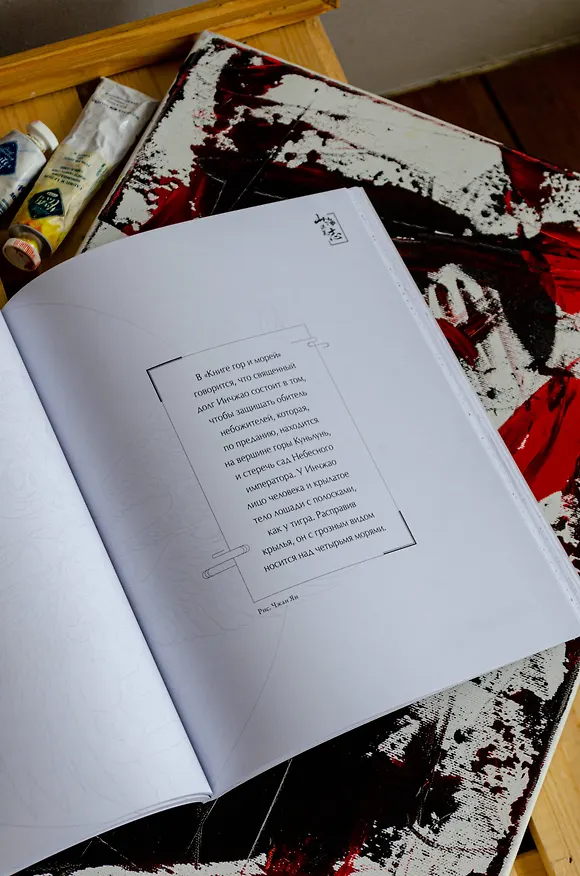 В «Книге гор и морей»
говорится, что священный
долг Инчжао состоит в том,
чтобы защищать обитель
небожителей, которая,
по преданию, находится
на вершине горы Куньлунь,
и стеречь сад Небесного
императора. У Инчжао
лицо человека и крылатое
тело лошади с полосками,
как у тигра. Расправив
крылья, он с грозным видом
носится над четырьмя морями.
Рис. Чжан Ян